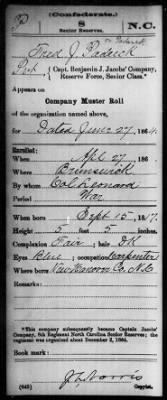 (Confederate.)
P 8 N.C.
Senior Reserves.
or Padrick
Fred J. Padrick
Pvt, Capt. Benjamin J. Jacobs' Company,
Reserve Force, Senior Class.*
Appears on
Company Muster Roll
of the organization named above,
for Dated June 27, 1864.
Enlisted:
When Apl 27, 186
Where Brunswick
By whom Col Leonard
Period War
When born Sept 15, 1817.
Height 5 feet 5 inches.
Complexion Fair; hair DK
Eyes Blue; occupation Carpenter
Where born New Hanover Co. N.C.
Remarks:
*This company subsequently became Captain Jacobs'
Company, 8th Regiment North Carolina Senior Reserves;
the regiment was organized about December 2, 1864.
Book mark:
(642) Copyist.